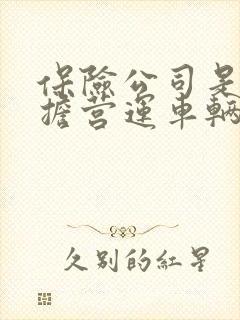 保險公司是
擔營運車輛
久别的紅星